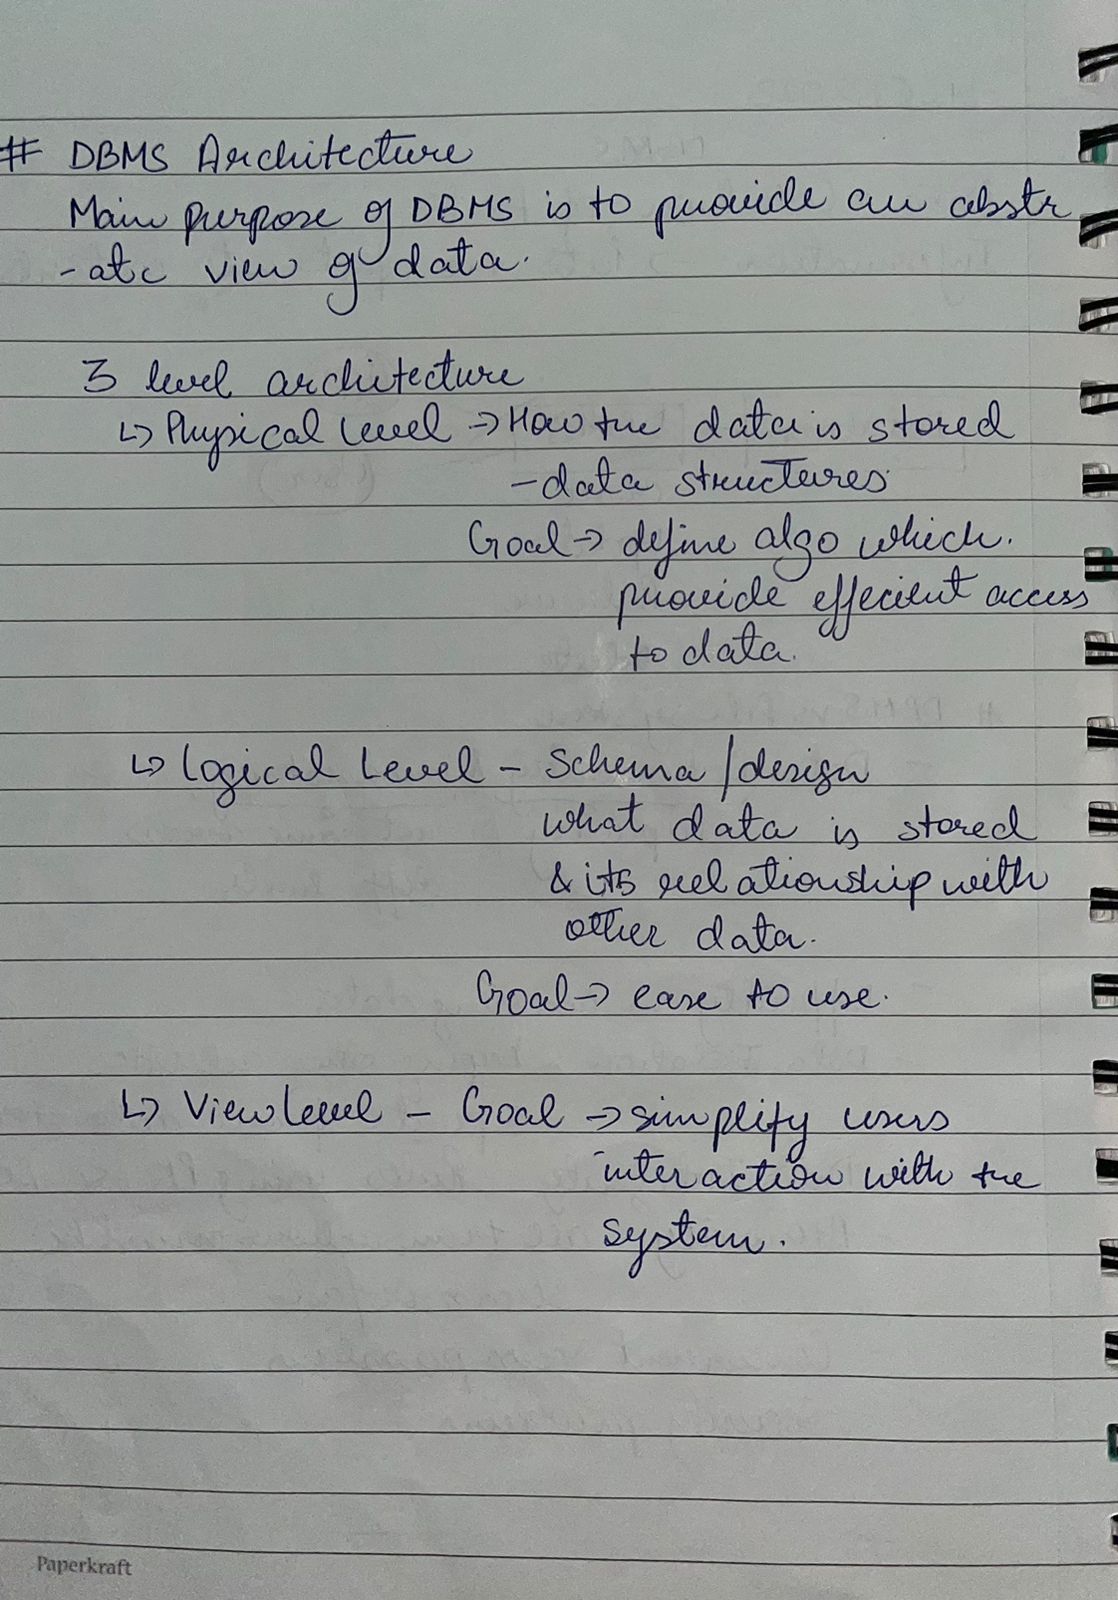 # DBMS Architecture
Main purpose of DBMS is to provide an abstr
-atc view of data.
3 level architecture
↳ Physical Level → How the data is stored
- data structures
Goal → define algo which.
provide effecient access
to data.
↳ Logical Level - Schema / design
what data is stored
& its relationship with
other data.
Goal → ease to use.
↳ View Level - Goal → simplify users
interaction with the
system.
Paperkraft